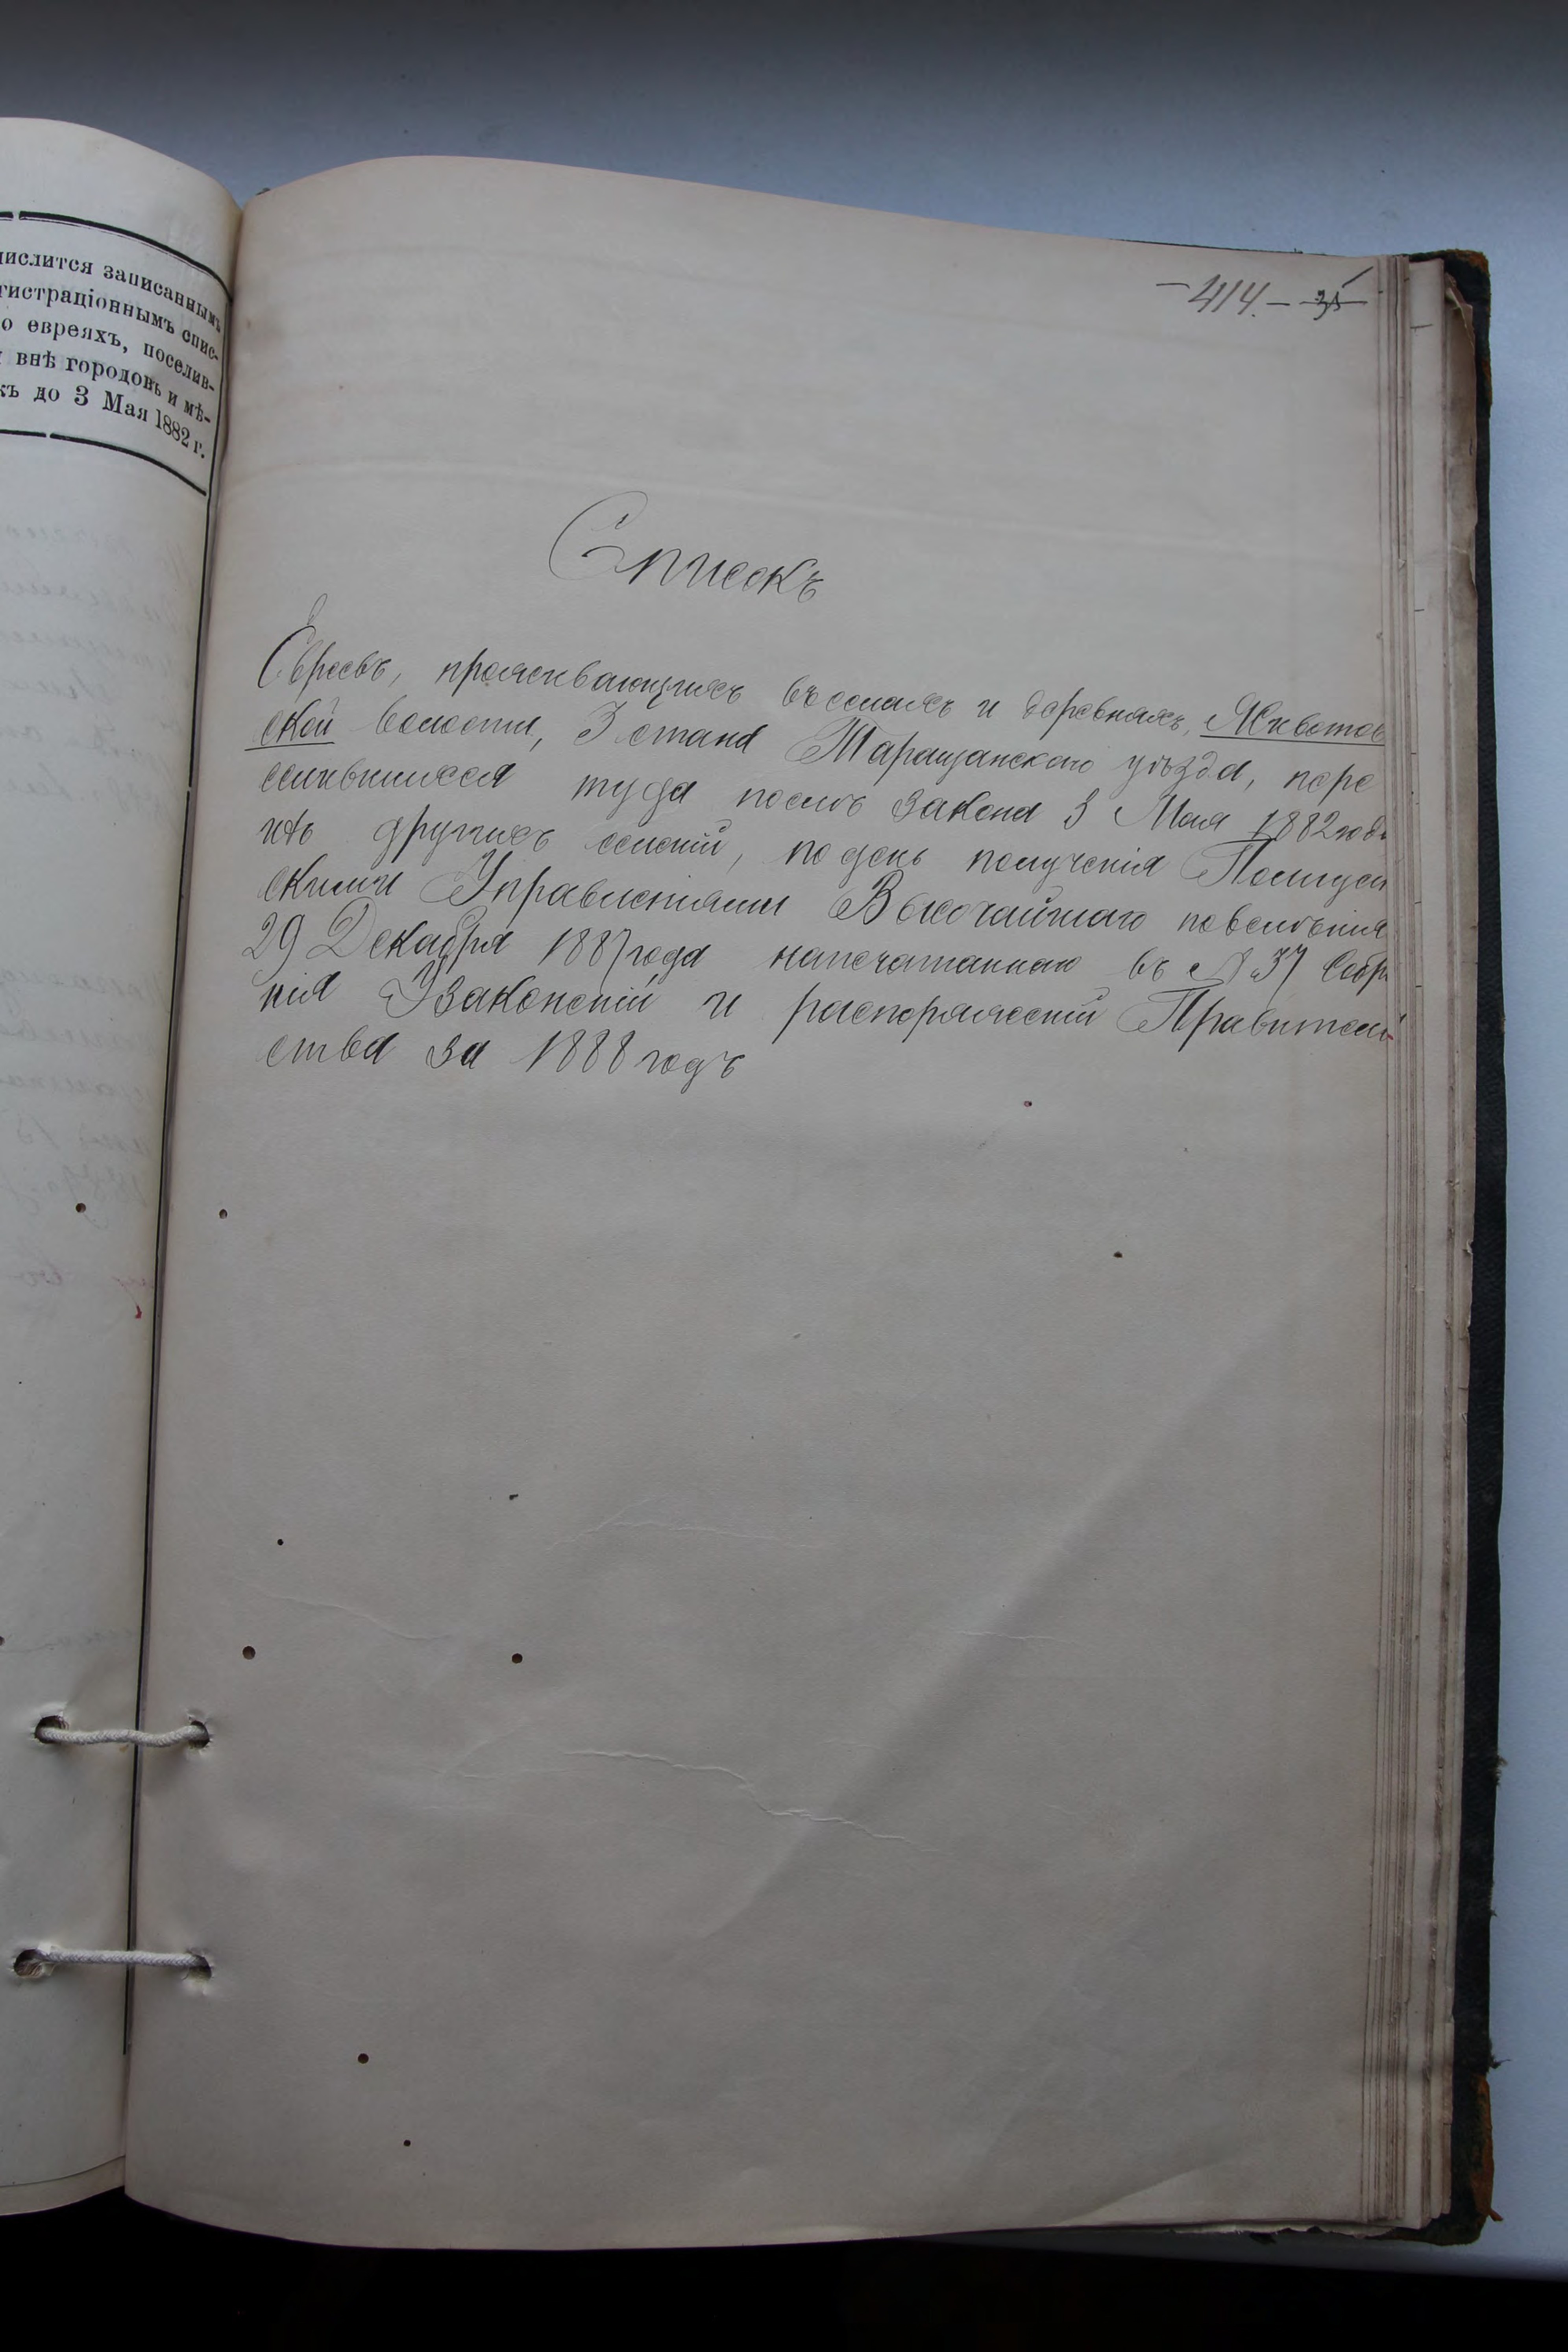 числится записаннымъ
гистраціоннымъ спис-
о евреяхъ, поселив-
внѣ городовъ и мѣ-
къ до 3 Мая 1882 г.
—414.— 35
Списокъ
Евреевъ, проживающихъ въ селахъ и деревняхъ, Жывотов
ской волости, 3 стана Таращанскаго уѣзда, пере
селившихся туда послѣ закона 3 Мая 1882 года
изъ другихъ селеній, по день полученія Полицей
скими Управленіями Высочайшаго повелѣнія
29 Декабря 1887 года напечатаннаго въ № 37 Собра
нія Узаконеній и распоряженій Правитель-
ства за 1888 годъ